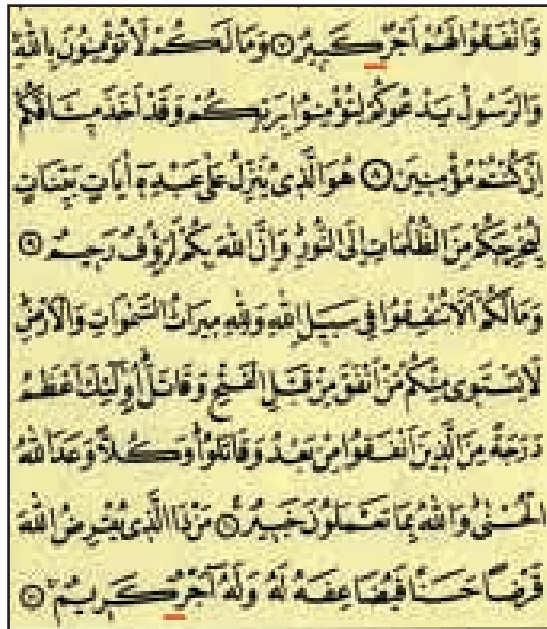 وَاَنْفَقُوا لَهُمْ اَجْرٌ كَبٖيرٌ ﴿٧﴾ وَمَا لَكُمْ لَا تُؤْمِنُونَ بِاللّٰهِۚ
وَالرَّسُولُ يَدْعُوكُمْ لِتُؤْمِنُوا بِرَبِّكُمْ وَقَدْ اَخَذَ مٖيثَاقَكُمْ
اِنْ كُنْتُمْ مُؤْمِنٖينَ ﴿٨﴾ هُوَ الَّذٖى يُنَزِّلُ عَلٰى عَبْدِهٖٓ اٰيَاتٍ بَيِّنَاتٍ
لِيُخْرِجَكُمْ مِنَ الظُّلُمَاتِ اِلَى النُّورِۜ وَاِنَّ اللّٰهَ بِكُمْ لَرَؤُفٌ رَحٖيمٌ ﴿٩﴾
وَمَا لَكُمْ اَلَّا تُنْفِقُوا فٖى سَبٖيلِ اللّٰهِ وَلِلّٰهِ مٖيرَاثُ السَّمٰوَاتِ وَالْاَرْضِۜ
لَا يَسْتَوٖى مِنْكُمْ مَنْ اَنْفَقَ مِنْ قَبْلِ الْفَتْحِ وَقَاتَلَۜ اُو۬لٰٓئِكَ اَعْظَمُ
دَرَجَةً مِنَ الَّذٖينَ اَنْفَقُوا مِنْ بَعْدُ وَقَاتَلُواۜ وَكُلًّا وَعَدَ اللّٰهُ
الْحُسْنٰىۜ وَاللّٰهُ بِمَا تَعْمَلُونَ خَبٖيرٌ ﴿١٠﴾ مَنْ ذَا الَّذٖى يُقْرِضُ اللّٰهَ
قَرْضًا حَسَنًا فَيُضَاعِفَهُ لَهُ وَلَهُٓ اَجْرٌ كَرٖيمٌۚ ﴿١١﴾